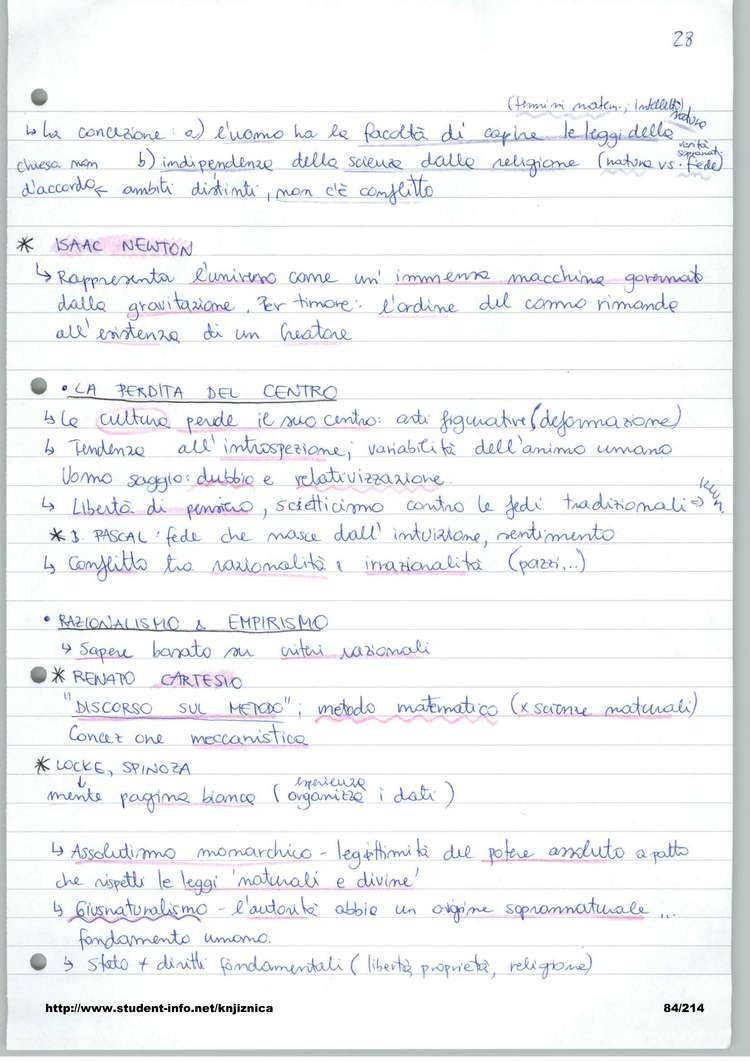 28
(termini matem., intelletto) natura
↳ La concezione: a) l'uomo ha la facoltà di capire le leggi della
chiesa non b) indipendenza della scienza dalla religione (natura vs. fede)
verità soprannat.
d'accordo ← ambiti distinti, non c'è conflitto
* ISAAC NEWTON
↳ Rappresenta l'universo come un' immensa macchina governata
dalla gravitazione. Per timore: l'ordine del cosmo rimanda
all'esistenza di un Creatore
• LA PERDITA DEL CENTRO
↳ La cultura perde il suo centro: arti figurative (deformazione)
↳ Tendenza all'introspezione, variabilità dell'animo umano
Uomo saggio: dubbio e relativizzazione
↳ Libertà di pensiero, scietticismo contro le fedi tradizionali ⇒
* B. PASCAL: fede che nasce dall'intuizione, sentimento
↳ Conflitto tra razionalità e irrazionalità (pazzi,...)
• RAZIONALISMO & EMPIRISMO
↳ Sapere basato su criteri razionali
* RENATO CARTESIO
"DISCORSO SUL METODO"; metodo matematico (x scienze naturali)
Concezione meccanistica
* LOCKE, SPINOZA
↓ esperienza
mente pagina bianca (organizza i dati)
↳ Assolutismo monarchico - legittimità del potere assoluto a patto
che rispetti le leggi 'naturali e divine'
↳ Giusnaturalismo - l'autorità abbia un origine soprannaturale ...
fondamento umano.
↳ Stato + diritti fondamentali (libertà, proprietà, religione)
http://www.student-info.net/knjiznica 84/214